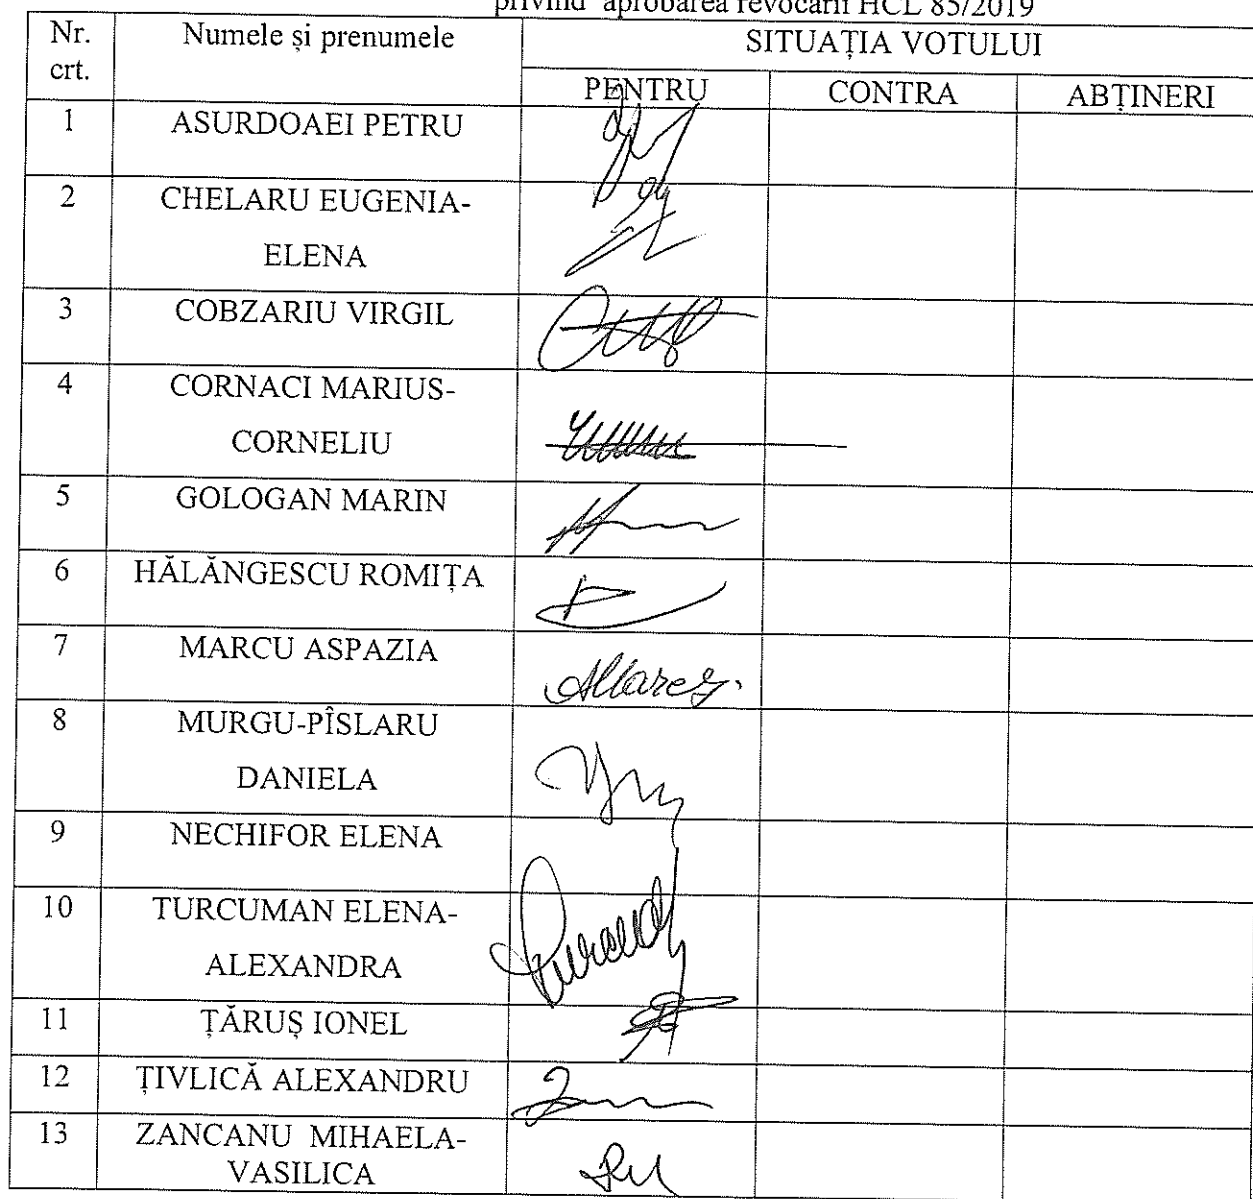 privind aprobarea revocării HCL 85/2019
Nr. crt. Numele și prenumele SITUAȚIA VOTULUI
PENTRU CONTRA ABȚINERI
1 ASURDOAEI PETRU
2 CHELARU EUGENIA-
ELENA
3 COBZARIU VIRGIL
4 CORNACI MARIUS-
CORNELIU
5 GOLOGAN MARIN
6 HĂLĂNGESCU ROMIȚA
7 MARCU ASPAZIA
8 MURGU-PÎSLARU
DANIELA
9 NECHIFOR ELENA
10 TURCUMAN ELENA-
ALEXANDRA
11 ȚĂRUȘ IONEL
12 ȚIVLICĂ ALEXANDRU
13 ZANCANU MIHAELA-
VASILICA